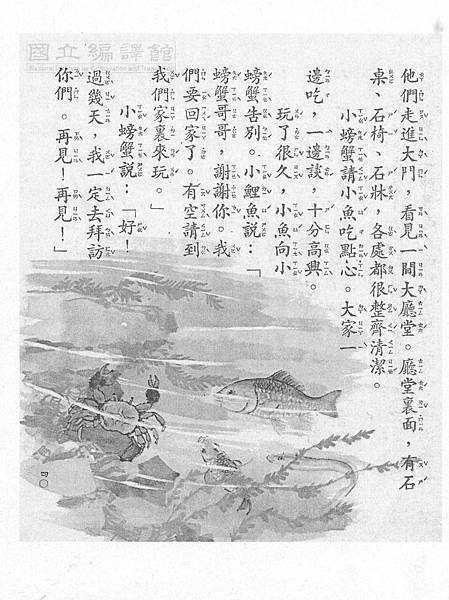 國立編譯館
他們走進大門，看見一間大廳堂。廳堂裏面，有石
桌、石椅、石牀，各處都很整齊清潔。
小螃蟹請小魚吃點心。大家一
邊吃，一邊談，十分高興。
玩了很久，小魚向小
螃蟹告別。小鯉魚說：「
螃蟹哥哥，謝謝你。我
們要回家了。有空請到
我們家裏來玩。」
小螃蟹說：「好！
過幾天，我一定去拜訪
你們。再見！再見！」
四〇